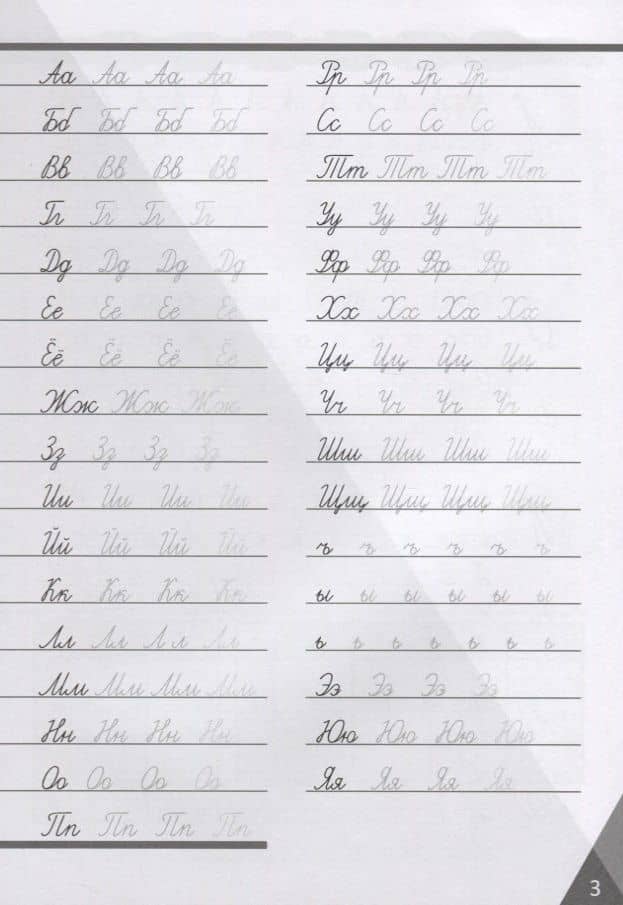 Аа Аа Аа Аа
Бб Бб Бб Бб
Вв Вв Вв Вв
Гг Гг Гг Гг
Дд Дд Дд Дд
Ее Ее Ее Ее
Ёё Ёё Ёё Ёё
Жж Жж Жж
Зз Зз Зз Зз
Ии Ии Ии Ии
Йй Йй Йй Йй
Кк Кк Кк Кк
Лл Лл Лл Лл
Мм Мм Мм Мм
Нн Нн Нн Нн
Оо Оо Оо Оо
Пп Пп Пп Пп
Рр Рр Рр Рр
Сс Сс Сс Сс
Тт Тт Тт Тт
Уу Уу Уу Уу
Фф Фф Фф Фф
Хх Хх Хх Хх
Цц Цц Цц Цц
Чч Чч Чч Чч
Шш Шш Шш Шш
Щщ Щщ Щщ Щщ
ъ ъ ъ ъ ъ ъ
ы ы ы ы ы ы
ь ь ь ь ь ь ь
Ээ Ээ Ээ Ээ
Юю Юю Юю Юю
Яя Яя Яя Яя
3